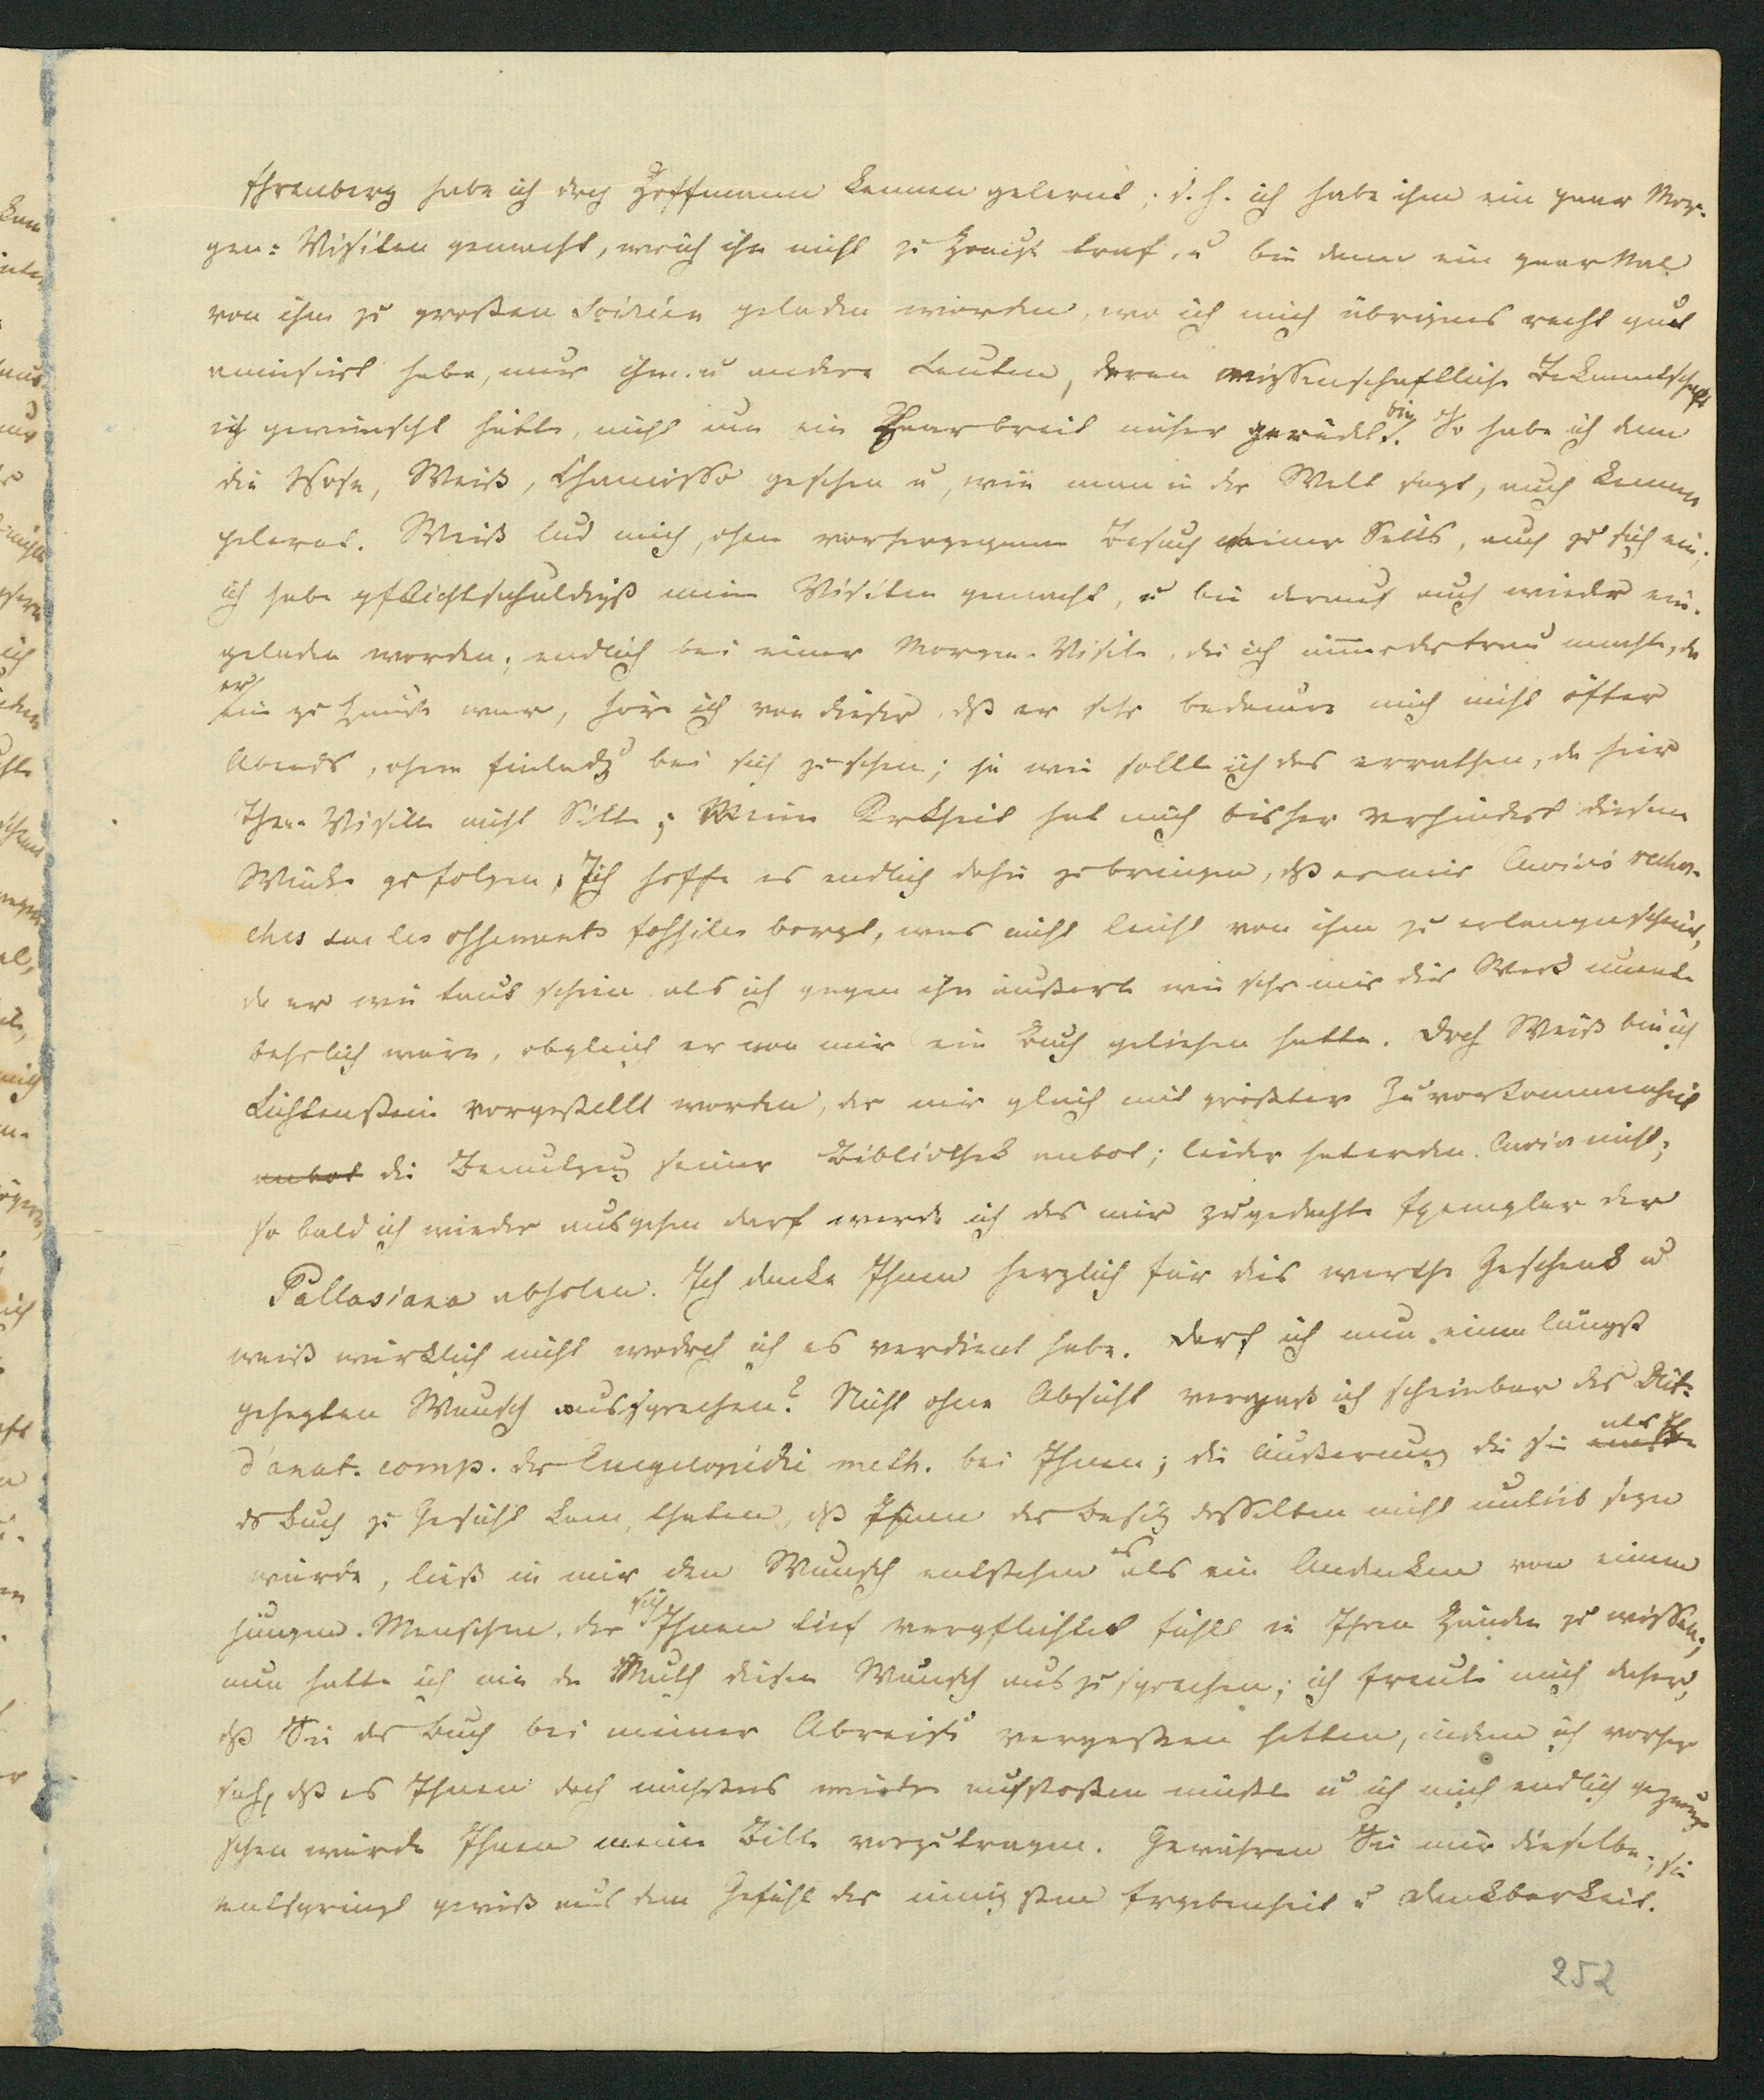 Ehrenberg habe ich doch Hoffmann kennen gelernt; d. h. ich habe ihm ein paar Mor-
gen-Visiten gemacht, wo ich ihn nicht zu Hause traf, u bin dann ein paar Mal
von ihm zu großen Soiréen geladen worden, wo ich mich übrigens recht gut
amüsirt habe, nur ihm u andere Leuten, deren wissenschaftliche Bekanntschaft
ich gewünscht hätte, nicht um ein Haarbreit näher gerückt bin. So habe ich denn
die Rose, Weiß, Chamisso gesehen u, wie man in der Welt sagt, auch kennen
gelernt. Weiß lud mich, ohne vorhergegangenen Besuch meiner Seits, auch zu sich ein;
ich habe pflichtschuldigst meine Visiten gemacht, u bin darauf auch wieder ein-
geladen worden; endlich bei einer Morgen-Visite, die ich machte, da
er zu Hause war, höre ich von dieser, dß er sehr bedaure mich nicht öfter
Abends, ohne Einladg bei sich zu sehen; ja wie sollte ich das errathen, da hier
Thee-Visite nicht Sitte; Meine Krkheit hat mich bisher verhindert diesem
Winke zu folgen; Ich hoffe es endlich dahin zu bringen, dß er mir Cuviers recher-
ches sur les ossements fossiles borgt, was nicht leicht von ihm zu erlangen scheint,
da er wie taub schien, als ich gegen ihn äußerte wie sehr mir dies Werk unent-
behrlich wäre, obgleich er von mir ein Buch geliehen hatte. Doch Weiß bin ich
Lichtenstein vorgestellt worden, der mir gleich mit größter Zuvorkommenheit
anbot die Benutzung seiner Bibliothek anbot; leider hat er den Cuvier nicht;
so bald ich wieder ausgehen darf werde ich das mir zugedachte Exemplar der
Pallasiana abholen. Ich danke Ihnen herzlich für dies werthe Geschenk u
weiß wirklich nicht wodch ich es verdient habe. Darf ich nun einen längst
gehegten Wunsch aussprechen? Nicht ohne Absicht vergaß ich scheinbar das Dict.
d'anat. comp. der Encyclopédie meth. bei Ihnen; die Äußerung die Sie als Ihn
ds Buch zu Gesicht kam, thaten, dß Ihnen der Besitz desselben nicht unlieb seyn
würde, ließ in mir den Wunsch entstehen es als ein Andenken von einem
jungen Menschen, der sich Ihnen tief verpflichtet fühlt in Ihren Händen zu wissen;
nun hatte ich nie den Muth diesen Wunsch auszusprechen; ich freute mich daher,
dß Sie das Buch bei meiner Abreise vergessen hatten, indem ich vorher
sah, dß es Ihnen doch nächstens wieder aufstoßen müßte u ich mich endlich gezwungen
sehen würde Ihnen meine Bitte vorzutragen. Gewähren Sie mir dieselbe; sie
entspringt gewiß aus dem Gefühl der innigsten Ergebenheit u Dankbarkeit.
252